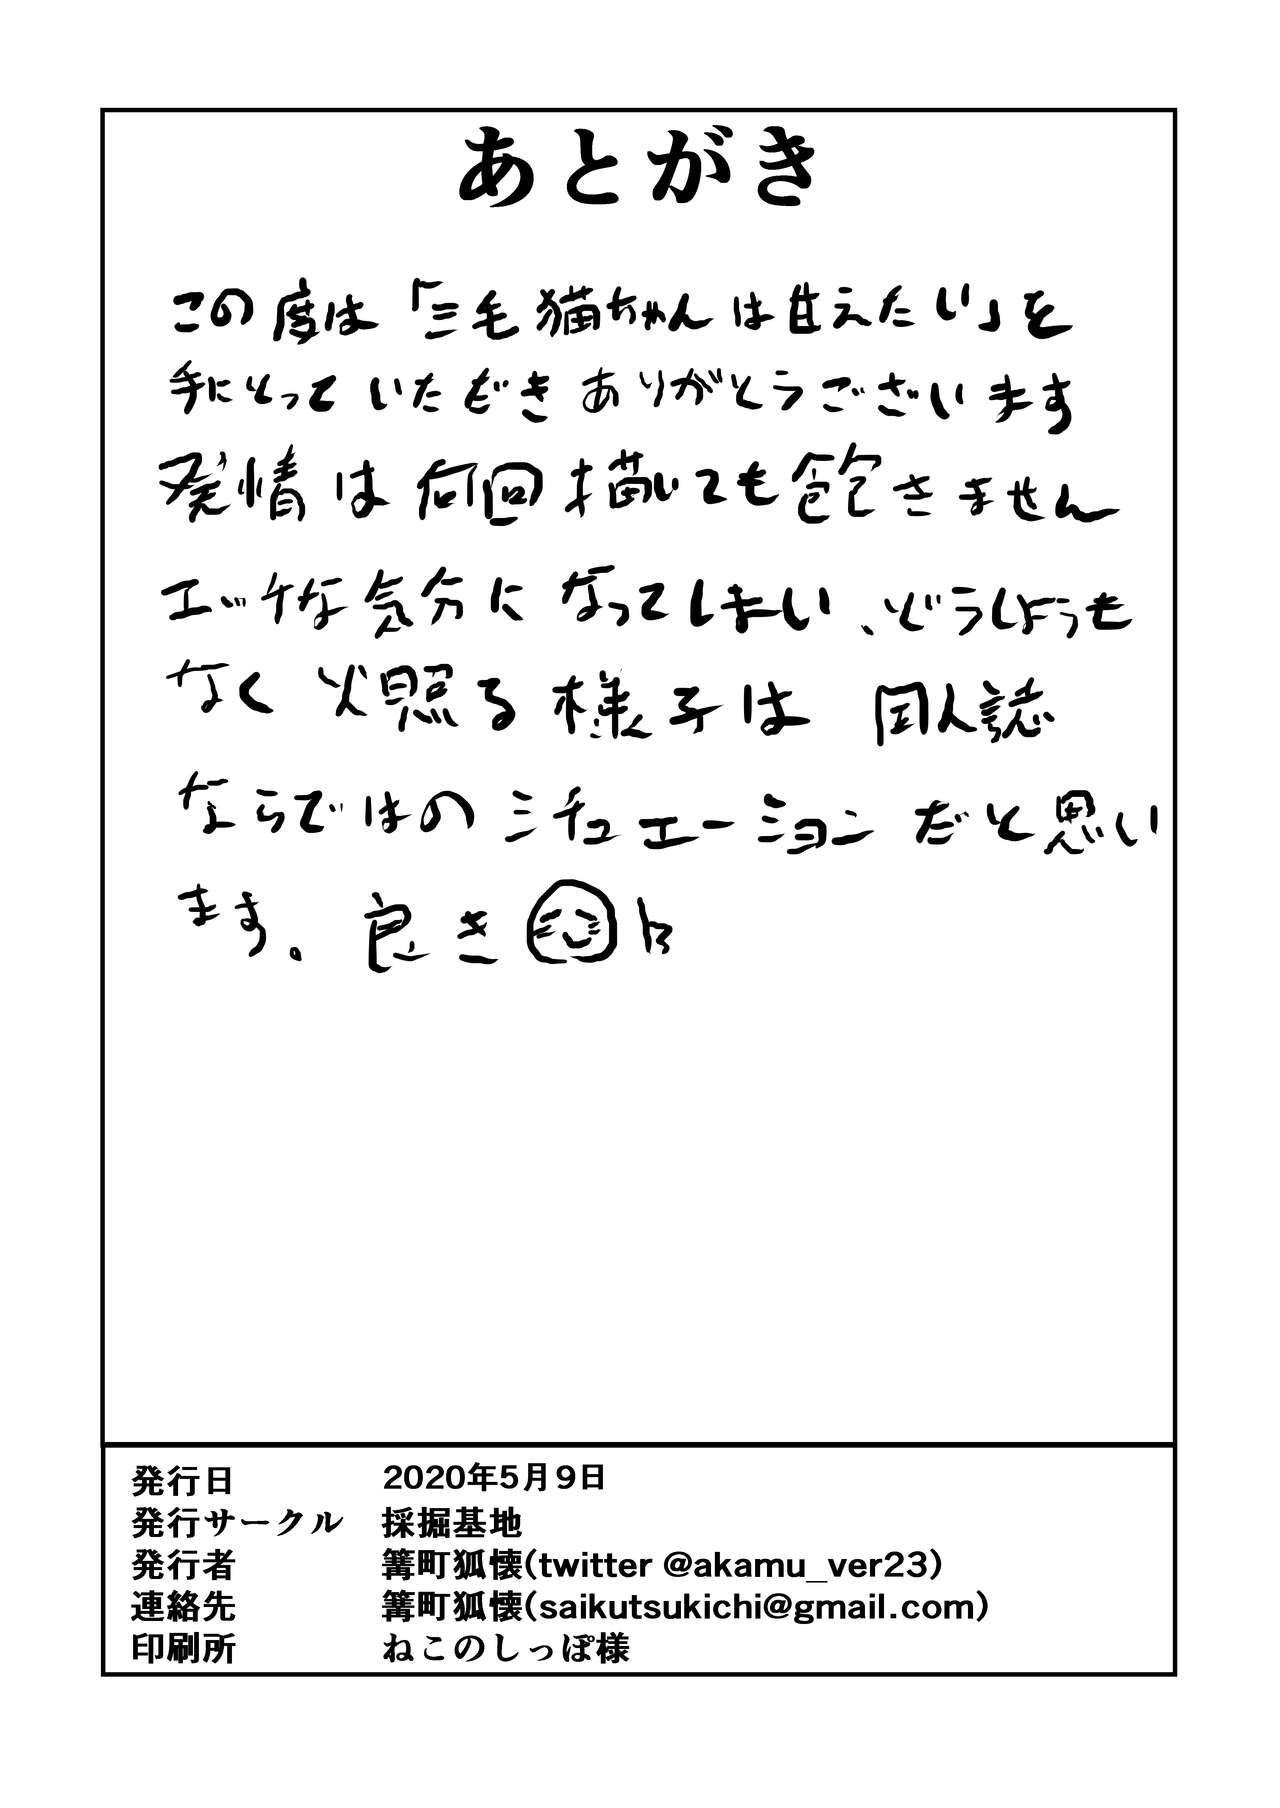 あとがき
この度は「三毛猫ちゃんは甘えたい」を
手にとっていただきありがとうございます
発情は何回描いても飽きません
エッチな気分になってしまい、どうしようも
なく火照る様子は 同人誌
ならではのシチュエーションだと思い
ます。良き
発行日 2020年5月9日
発行サークル 採掘基地
発行者 篝町狐懐(twitter @akamu_ver23)
連絡先 篝町狐懐(saikutsukichi@gmail.com)
印刷所 ねこのしっぽ様